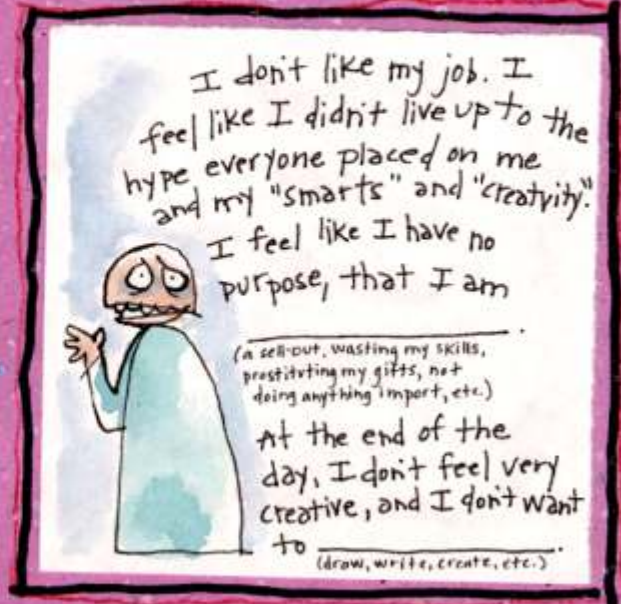 I don't like my job. I
feel like I didn't live up to the
hype everyone placed on me
and my "smarts" and "creatvity".
I feel like I have no
purpose, that I am
____________________.
(a sell-out, wasting my skills,
prostituting my gifts, not
doing anything import, etc.)
At the end of the
day, I don't feel very
creative, and I don't want
to ____________________.
(draw, write, create, etc.)